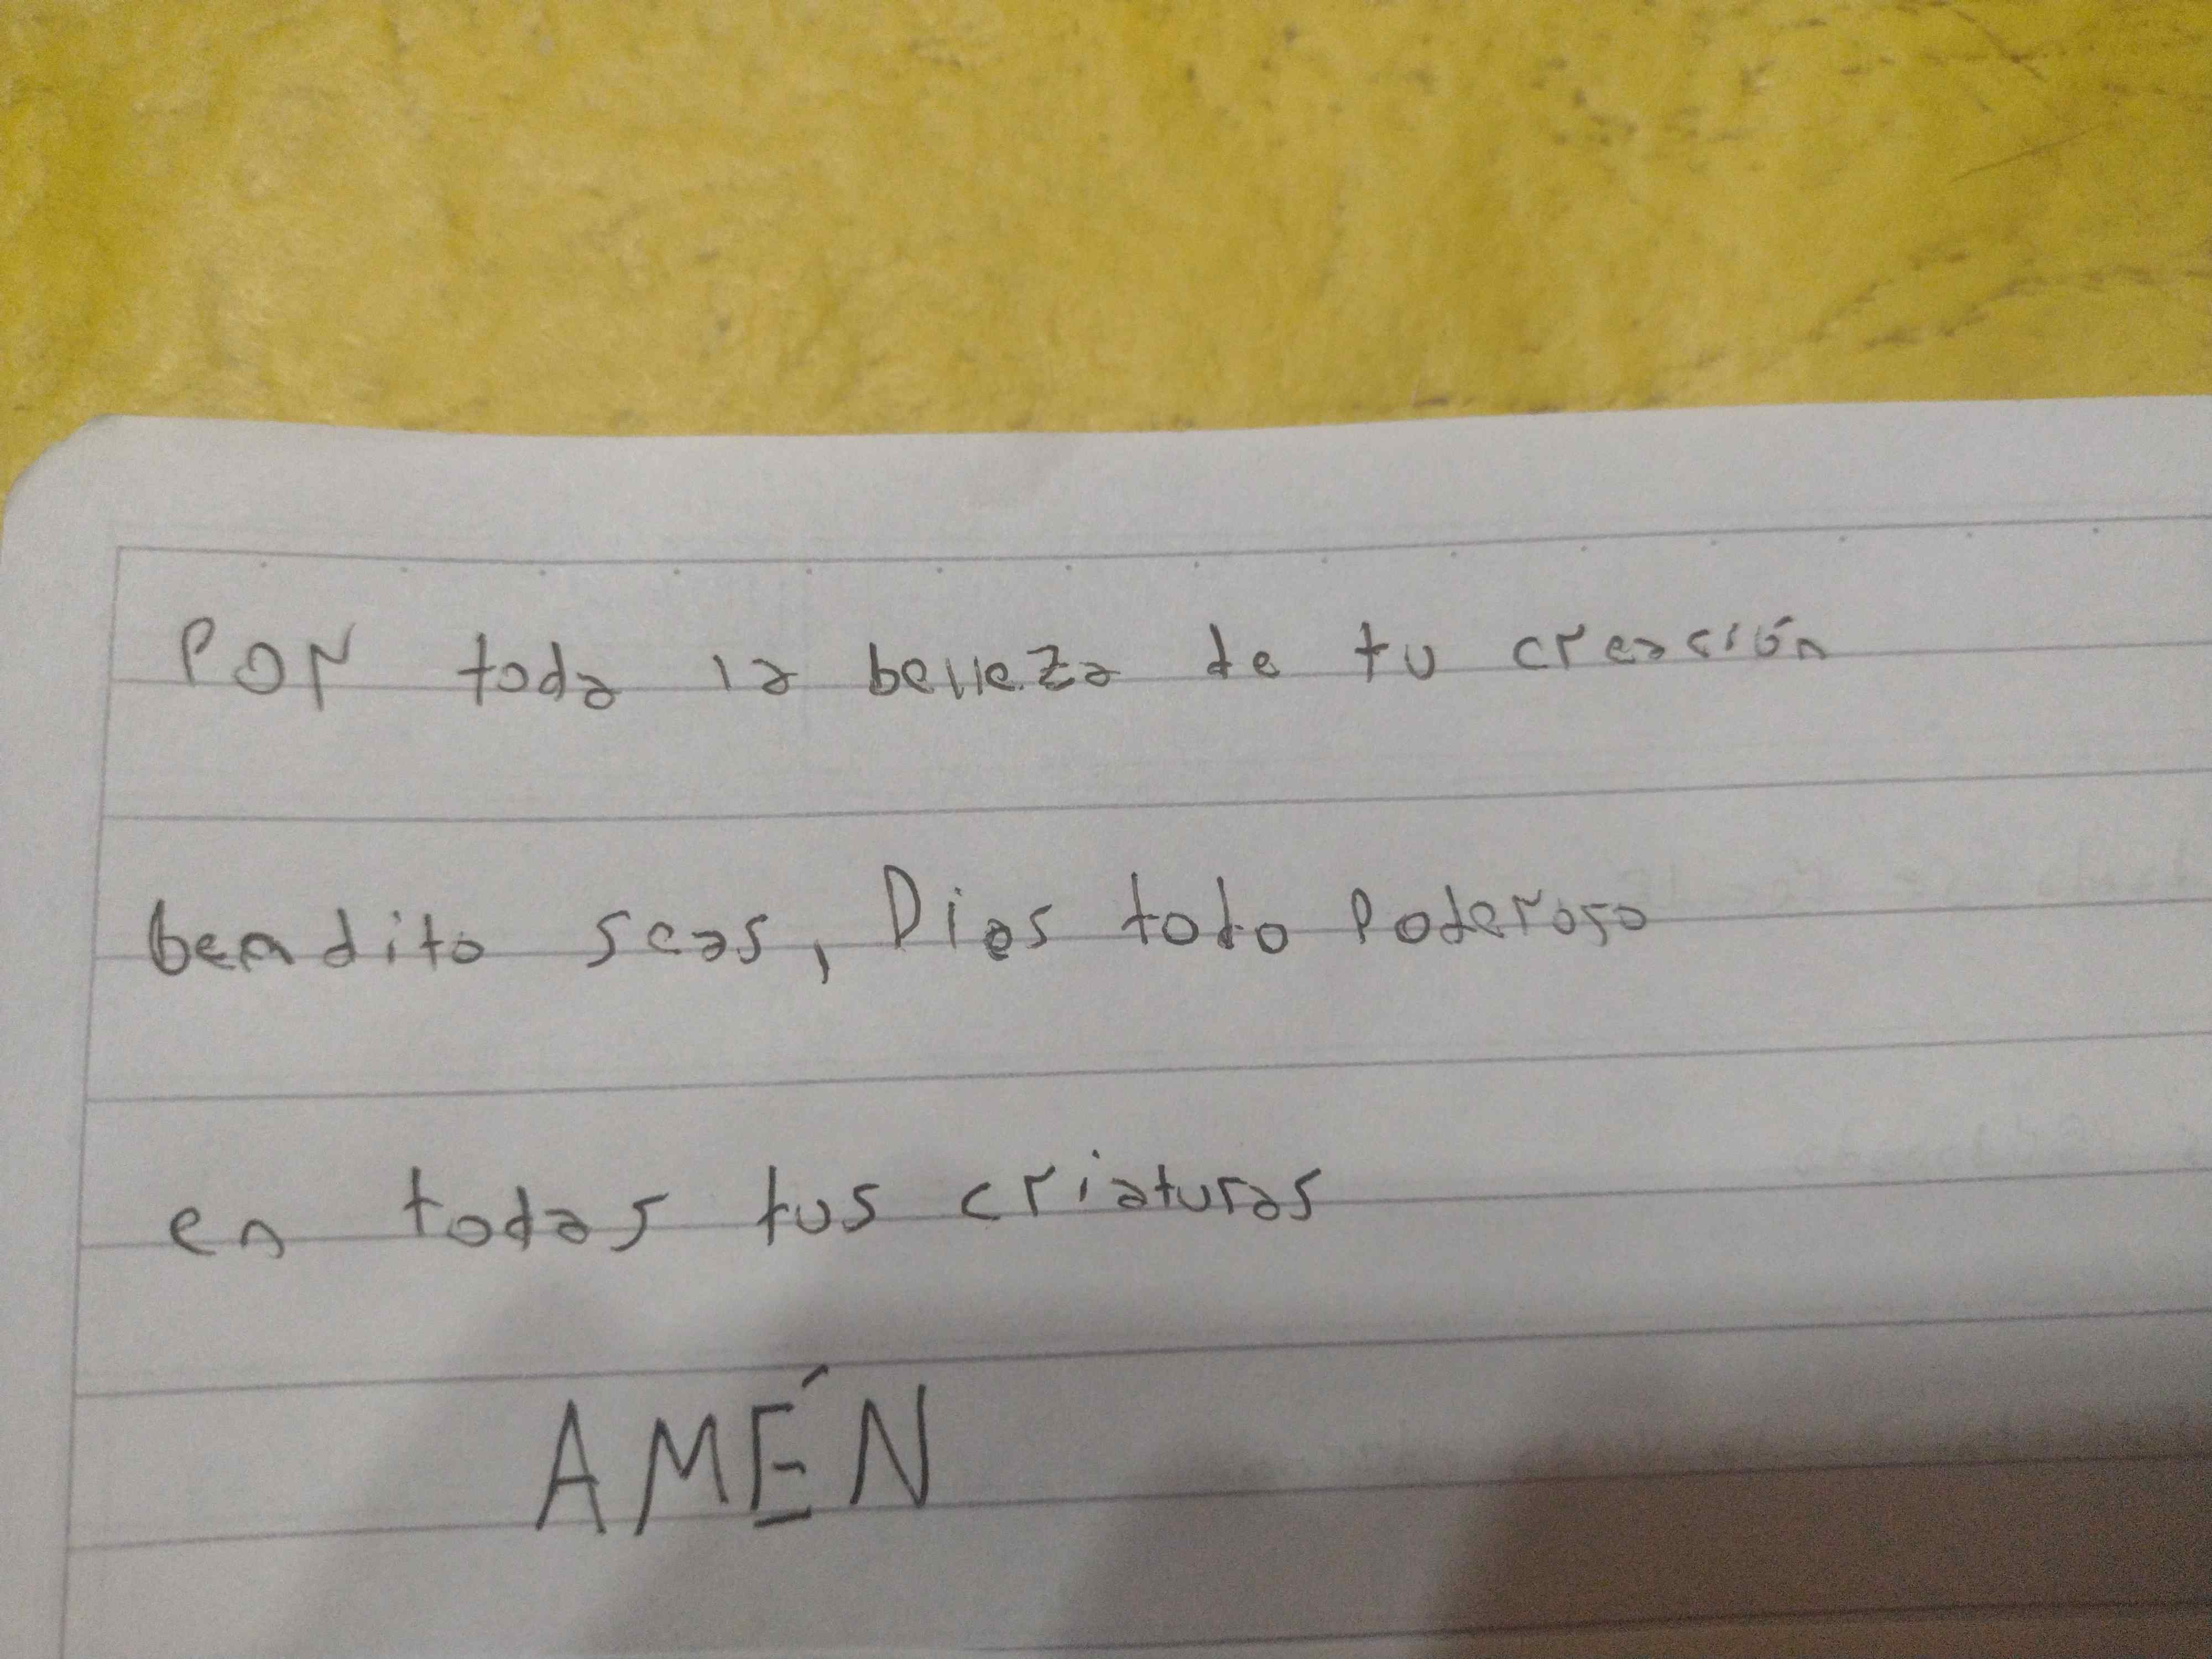 Por toda la belleza de tu creación
bendito seas, Dios todo Poderoso
en todas tus criaturas
AMÉN